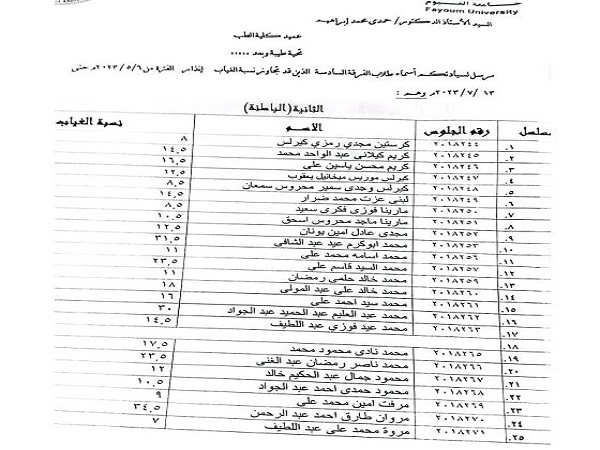 جامعة الفيوم
Fayoum University
السيد الأستاذ الدكتور/ حمدى محمد إبراهيم
عميد كلية الطب
تحية طيبة وبعد .....
مرسل لسيادتكم أسماء طلاب الفرقة السادسة الذين قد تجاوز نسبة الغياب إنذار الفترة من ٢٠٢٣/٥/٦م حتى
٢٠٢٣/٧/١٣م وهم :
الثانية (الباطنة)
مسلسل رقم الجلوس الاسم نسبة الغياب
١. ٢٠١٨٢٤٤ كرستين مجدي رمزي كيرلس ٨
٢. ٢٠١٨٢٤٥ كريم كيلانى عبد الواحد محمد ١٤.٥
٣. ٢٠١٨٢٤٦ كريم محسن ياسين على ١٦.٥
٤. ٢٠١٨٢٤٧ كيرلس موريس ميخائيل يعقوب ١٢.٥
٥. ٢٠١٨٢٤٨ كيرلس وجدى سمير محروس سمعان ٨.٥
٦. ٢٠١٨٢٤٩ لبنى عزت محمد ضرار ١٤.٥
٧. ٢٠١٨٢٥٠ مارينا فوزى فكرى سعيد ٨.٥
٨. ٢٠١٨٢٥١ مارينا ماجد محروس اسحق ١٠.٥
٩. ٢٠١٨٢٥٢ مجدى عادل امين يونان ١٢.٥
١٠. ٢٠١٨٢٥٣ محمد ابوكرم عيد عبد الشافي ٣١.٥
١١. ٢٠١٨٢٥٦ محمد اسامه محمد على ١١
١٢. ٢٠١٨٢٥٧ محمد السيد قاسم على ٢٣.٥
١٣. ٢٠١٨٢٥٩ محمد خالد حلمى رمضان ١١
١٤. ٢٠١٨٢٦٠ محمد خالد على عبد المولى ١٨
١٥. ٢٠١٨٢٦١ محمد سيد احمد على ١٦
١٦. ٢٠١٨٢٦٢ محمد عبد العليم عبد الحميد عبد الجواد ٣٠
١٧. ٢٠١٨٢٦٣ محمد عيد فوزي عبد اللطيف ١٤.٥
١٨.
١٩. ٢٠١٨٢٦٥ محمد نادى محمود محمد ١٧.٥
٢٠. ٢٠١٨٢٦٦ محمد ناصر رمضان عبد الغنى ٢٣.٥
٢١. ٢٠١٨٢٦٧ محمود جمال عبد الحكيم خالد ١٢
٢٢. ٢٠١٨٢٦٨ محمود حمدى احمد عبد الجواد ١٠.٥
٢٣. ٢٠١٨٢٦٩ مرفت امين محمد على ٩
٢٤. ٢٠١٨٢٧٠ مروان طارق احمد عبد الرحمن ٣٤.٥
٢٥. ٢٠١٨٢٧١ مروة محمد على عبد اللطيف ٧